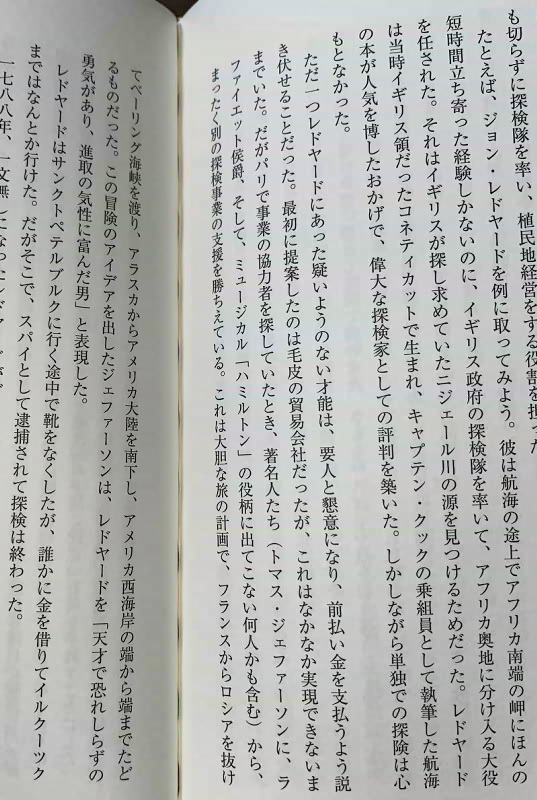 も切らずに探検隊を率い、植民地経営をする役割を担った
たとえば、ジョン・レドヤードを例に取ってみよう。彼は航海の途上でアフリカ南端の岬にほんの
短時間立ち寄った経験しかないのに、イギリス政府の探検隊を率いて、アフリカ奥地に分け入る大役
を任された。それはイギリスが探し求めていたニジェール川の源を見つけるためだった。レドヤード
は当時イギリス領だったコネティカットで生まれ、キャプテン・クックの乗組員として執筆した航海
の本が人気を博したおかげで、偉大な探検家としての評判を築いた。しかしながら単独での探険は心
もとなかった。
ただ一つレドヤードにあった疑いようのない才能は、要人と懇意になり、前払い金を支払うよう説
き伏せることだった。最初に提案したのは毛皮の貿易会社だったが、これはなかなか実現できないま
までいた。だがパリで事業の協力者を探していたとき、著名人たち（トマス・ジェファーソンに、ラ
ファイエット侯爵、そして、ミュージカル「ハミルトン」の役柄に出てこない何人かも含む）から、
まったく別の探検事業の支援を勝ちえている。これは大胆な旅の計画で、フランスからロシアを抜け
てベーリング海峡を渡り、アラスカからアメリカ大陸を南下し、アメリカ西海岸の端から端までたど
るものだった。この冒険のアイデアを出したジェファーソンは、レドヤードを「天才で恐れしらずの
勇気があり、進取の気性に富んだ男」と表現した。
レドヤードはサンクトペテルブルクに行く途中で靴をなくしたが、誰かに金を借りてイルクーツク
まではなんとか行けた。だがそこで、スパイとして逮捕されて探検は終わった。
一七八八年、一文無しになった